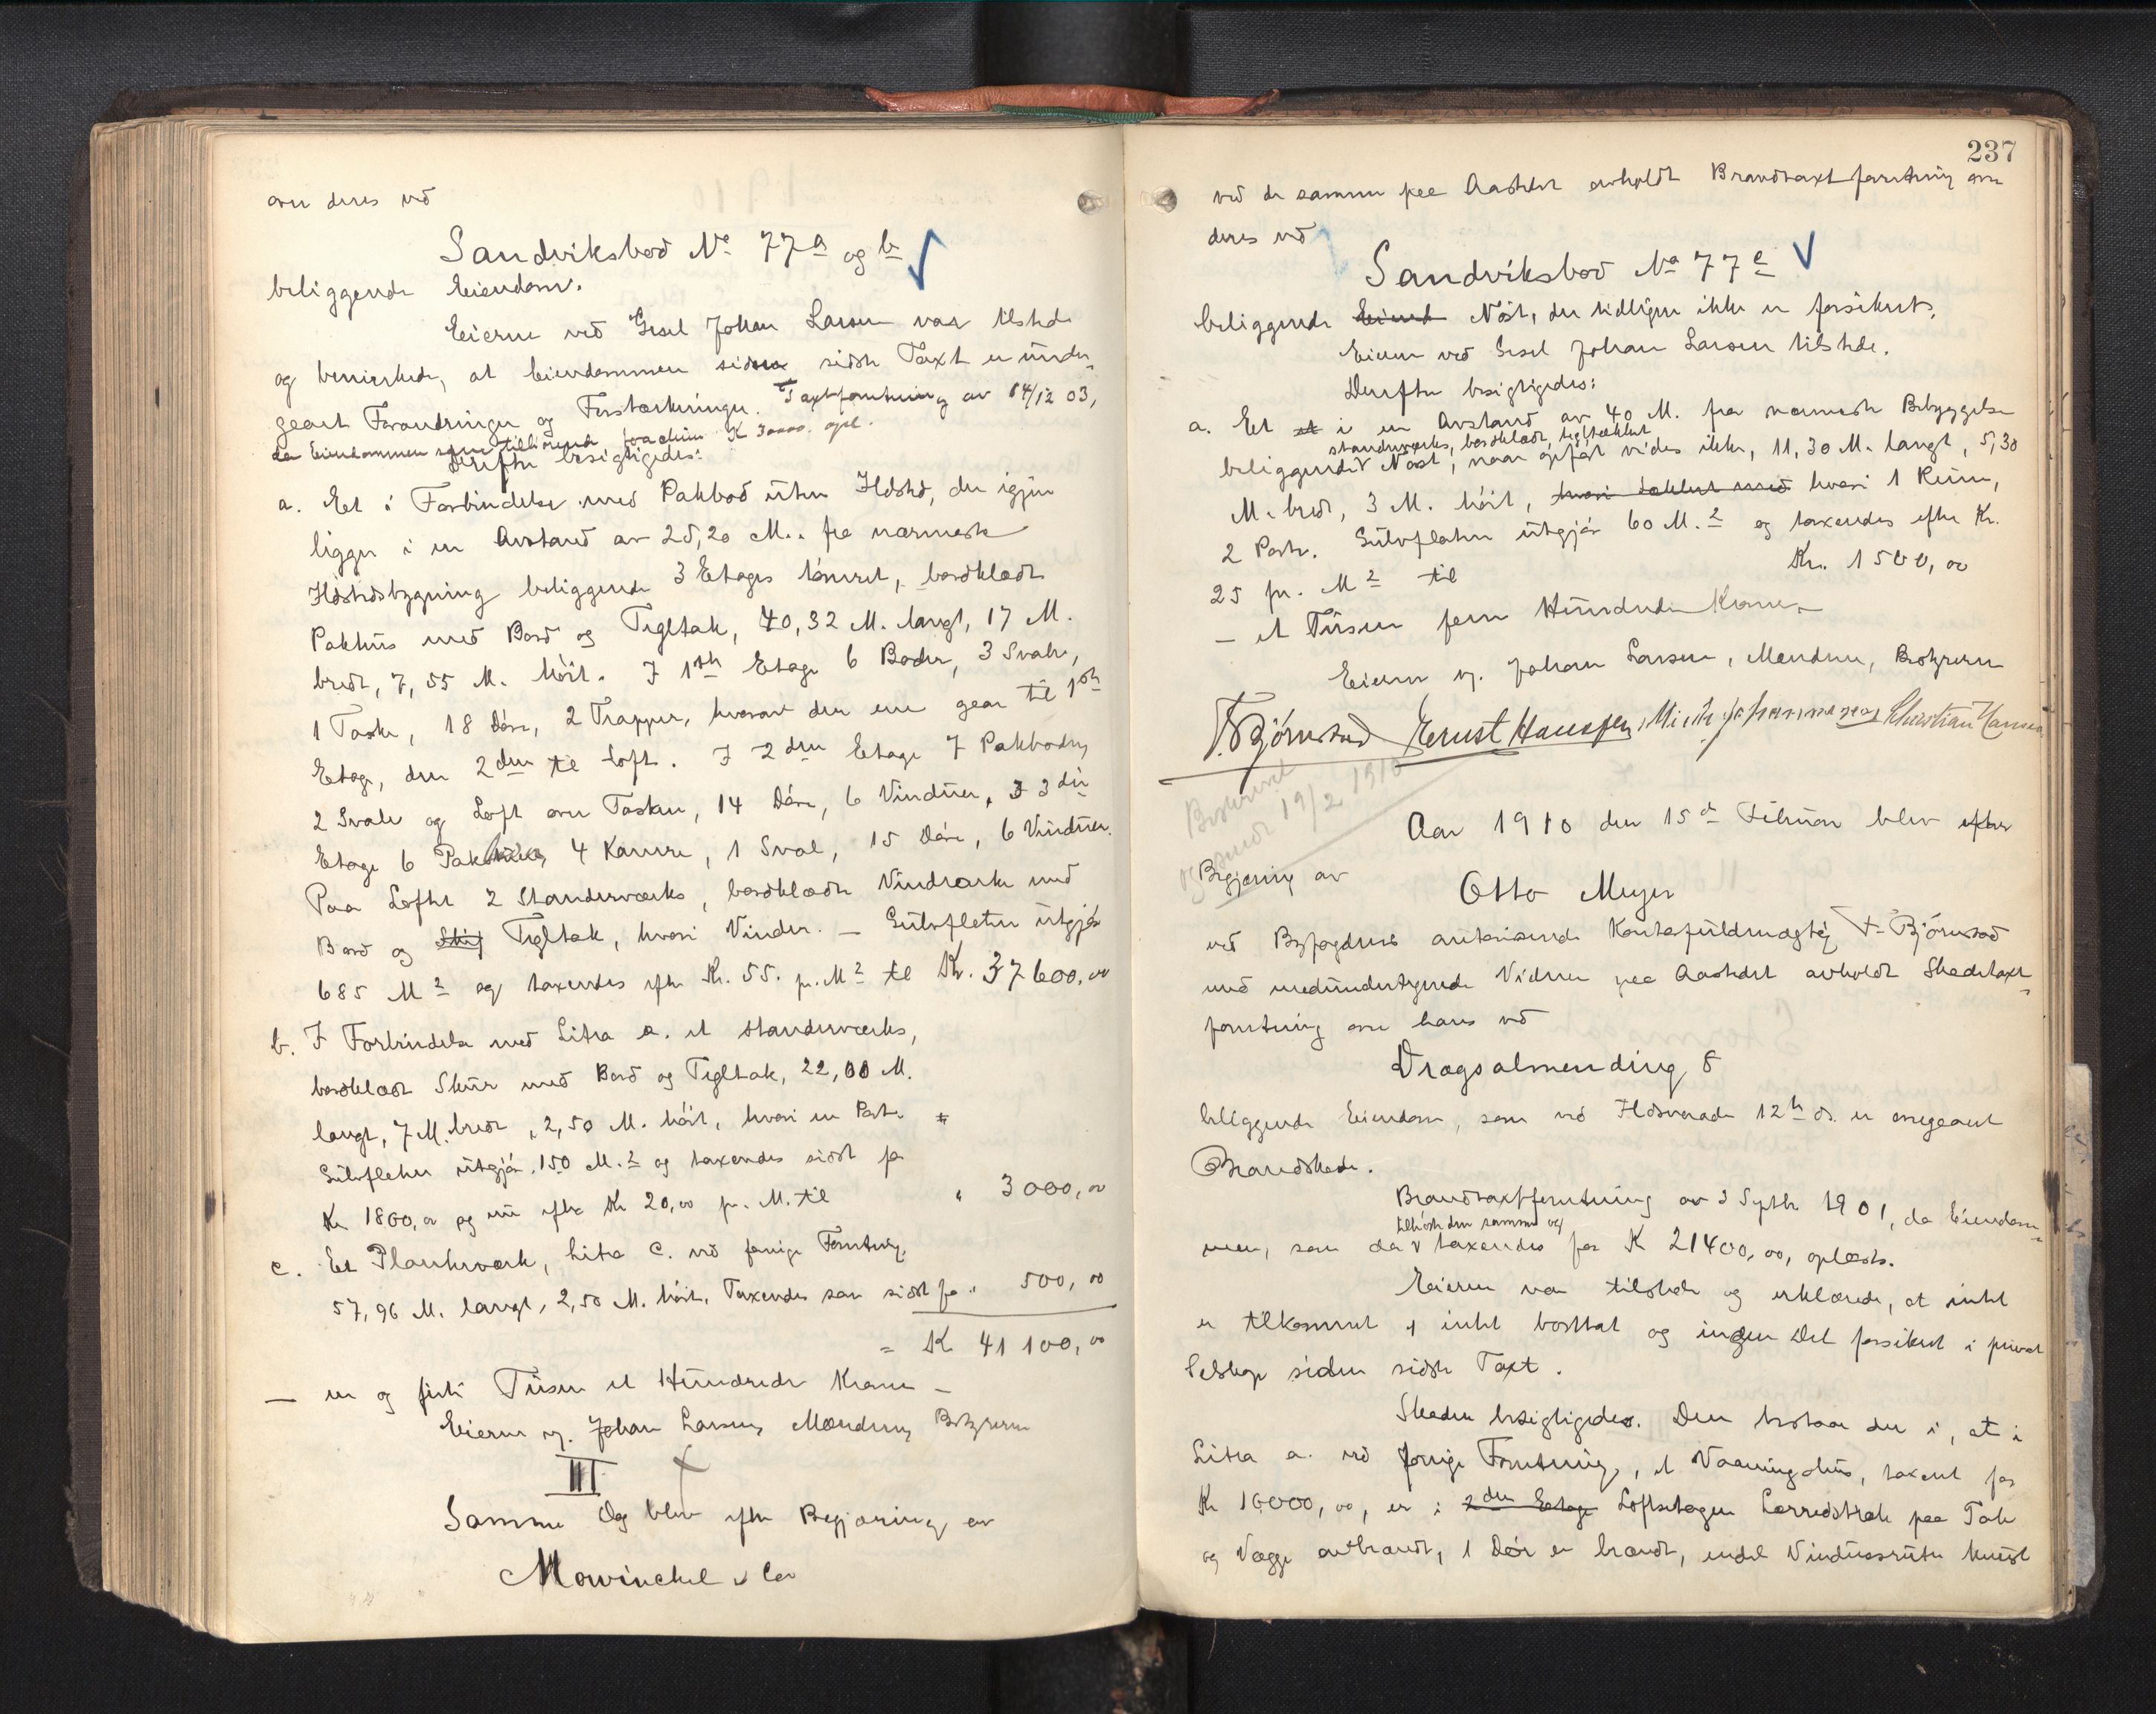 over deres ved
Sandviksbod No 77a og b
beliggende Eiendom.
Eierne ved Gesel Johan Larsen var tilstede
og bemerkede, at Eiendommen siden sidste Taxt er under-
gaaet Forandringer og Forstærkninger. Taxtforretning av 14/12 03,
da Eiendommen tilhørende Joachim K 30000. opl.
Derefter besigtigedes:
a. Et i Forbindelse med Pakbod uten Ildsted, der igjen
ligger i en Avstand av 25,20 M. fra nærmeste
Ildstedsbygning beliggende 3 Etages tømret, bordklædt
Pakhus med Bord og Tegltak, 40,32 M. langt, 17 M.
bredt, 7,55 M. høit. I 1ste Etage 6 Boder, 3 Svale,
1 Taske, 18 Døre, 2 Trapper, hvorav den ene gaar til 1ste
Etage, den 2den til Loft. I 2den Etage 7 Pakboder,
2 Svale og Loft over Tasken, 14 Døre, 6 Vinduer, I 3die
Etage 6 Pakboder, 4 Kamre, 1 Sval, 15 Døre, 6 Vinduer.
Paa Loftet 2 Standerværks, bordklædte Vindearke med
Bord og Skif Tegltak, hvori Vinder. — Gulvflaten utgjør
685 M2 og taxeredes efter Kr. 55. pr. M2 til Kr. 37600,00
b. I Forbindelse med Litra a. et standerværks,
bordklædt Skur med Bord og Tegltak, 22,00 M.
langt, 7 M. bredt, 2,50 M. høit, hvori en Port.
Gulvflaten utgjør 150 M.2 og taxeredes sidst for
Kr 1800,00 og nu efter Kr 20,00 pr. M. til " 3000,00
c. Et Plankeværk, Litra C. ved forrige Forretning,
57,96 M. langt, 2,50 M. høit. Taxeredes som sidst for " 500,00
= K 41100,00
— en og firti Tusen et Hundrede Kroner —
Eierne v. Johan Larsen, Mændene, Bestyreren
III
Samme Dag blev efter Begjæring av
Mowinckel & Co
237
ved de samme paa Aastedet avholdt Brandtaxtforretning over
deres ved
Sandviksbod No 77e
beliggende Eiend Nøst, der tidligere ikke er forsikret.
Eieren ved Gesel Johan Larsen tilstede.
Derefter besigtigedes:
a. Et et i en Avstand av 40 M. fra nærmeste Bebyggelse
standerværks, bordklædt, tegltækket
beliggende Nøst, naar opført vides ikke, 11,30 M. langt, 5,30
M. bredt, 3 M. høit, hvori 1 Rum,
2 Porte. Gulvflaten utgjør 60 M.2 og taxeredes efter Kr.
25 pr. M2 til Kr. 1500,00
— et Tusen fem Hundrede Kroner —
Eieren v. Johan Larsen, Mændene, Bestyreren
F. Bjørnstad Ernst Hansen Mich. Johannessen Christian Hansen
Beskrevet
19/2 1910
Aar 1910 den 15de Februar blev efter
Begjæring av
Otto Meyer
ved Byfogdens autoriserede Kontorfuldmægtig F. Bjørnstad
med medundertegnede Vidner paa Aastedet avholdt Skadetaxt-
forretning over hans ved
Dragsalmending 8
beliggende Eiendom, som ved Ildsvaade 12te ds. er overgaaet
Brandskade.
Brandtaxtforretning av 3 Septbr 1901, da Eiendom-
tilhørte den samme og
men, som da taxeredes for K 21400,00, oplæstes.
Eieren var tilstede og erklærede, at intet
er tilkommet og intet borttat og ingen Del forsikret i privat
Selskap siden sidste Taxt.
Skaden besigtigedes. Den bestaar der i, at i
Litra a. ved forrige Forretning, et Vaaningshus, taxeret for
Kr 16000,00, er i 2den Etage Loftsetagen Lærredstræk paa Tak
og Vægge avbrændt, 1 Dør er brændt, endel Vindusruter knust